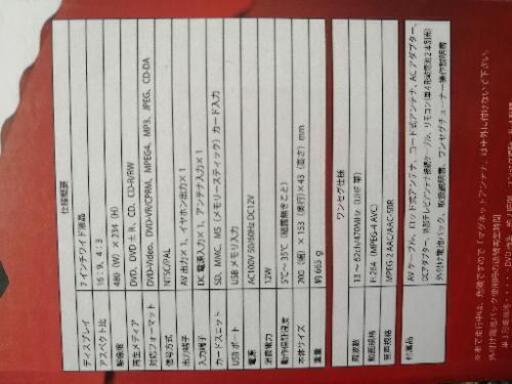 仕様概要
ディスプレイ 7インチワイド液晶
アスペクト比 16：9、4：3
解像度 480 (W) × 234 (H)
再生メディア DVD、DVD±R、CD、CD-R/RW
対応フォーマット DVD-Video、DVD-VR/CPRM、MPEG4、MP3、JPEG、CD-DA
信号方式 NTSC/PAL
出力端子 AV出力×1、イヤホン出力×1
入力端子 DC電源入力×1、アンテナ入力×1
カードスニット SD、MMC、MS（メモリースティック）カード入力
USBポート USBメモリ入力
電源 AC100V 50/60Hz DC12V
消費電力 12W
動作保証温度 5℃～35℃（結露無きこと）
本体サイズ 200（幅）×153（奥行）×43（高さ）mm
重量 約665g
ワンセグ仕様
周波数 13～62ch/470MHz（UHF帯）
動画規格 H.264 (MPEG-4 AVC)
音声規格 MPEG-2 AAC/AAC-SBR
付属品 AVケーブル、ロッド式アンテナ、コード式アンテナ、ACアダプター、
DCアダプター、外部テレビアンテナ接続ケーブル、リモコン
外付け電池パック、取扱説明書、ワンセグチューナー操作説明書
※車で走行中は、危険ですので「マグネットアンテナ」は車外に付けないで下さい。
外付け電池パック使用時の連続再生時間